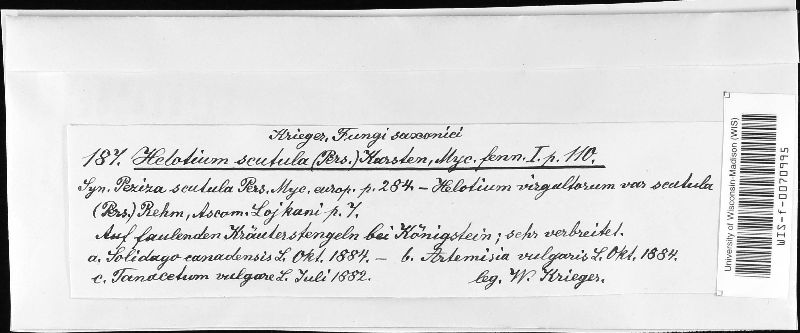 Krieger, Fungi saxonici
187. Helotium scutula (Pers.) Karsten, Myc. fenn. I. p. 110.
Syn. Peziza scutula Pers. Myc. europ. p. 284 – Helotium virgultorum var scutula
(Pers.) Rehm, Ascom. Lojkani p. 7.
Auf faulenden Kräuterstengeln bei Königstein; sehr verbreitet.
a. Solidago canadensis L. Okt. 1884. – b. Artemisia vulgaris L. Okt. 1884.
c. Tanacetum vulgare L. Juli 1882. leg. W. Krieger.
University of Wisconsin-Madison (WIS)
WIS-f-0070995